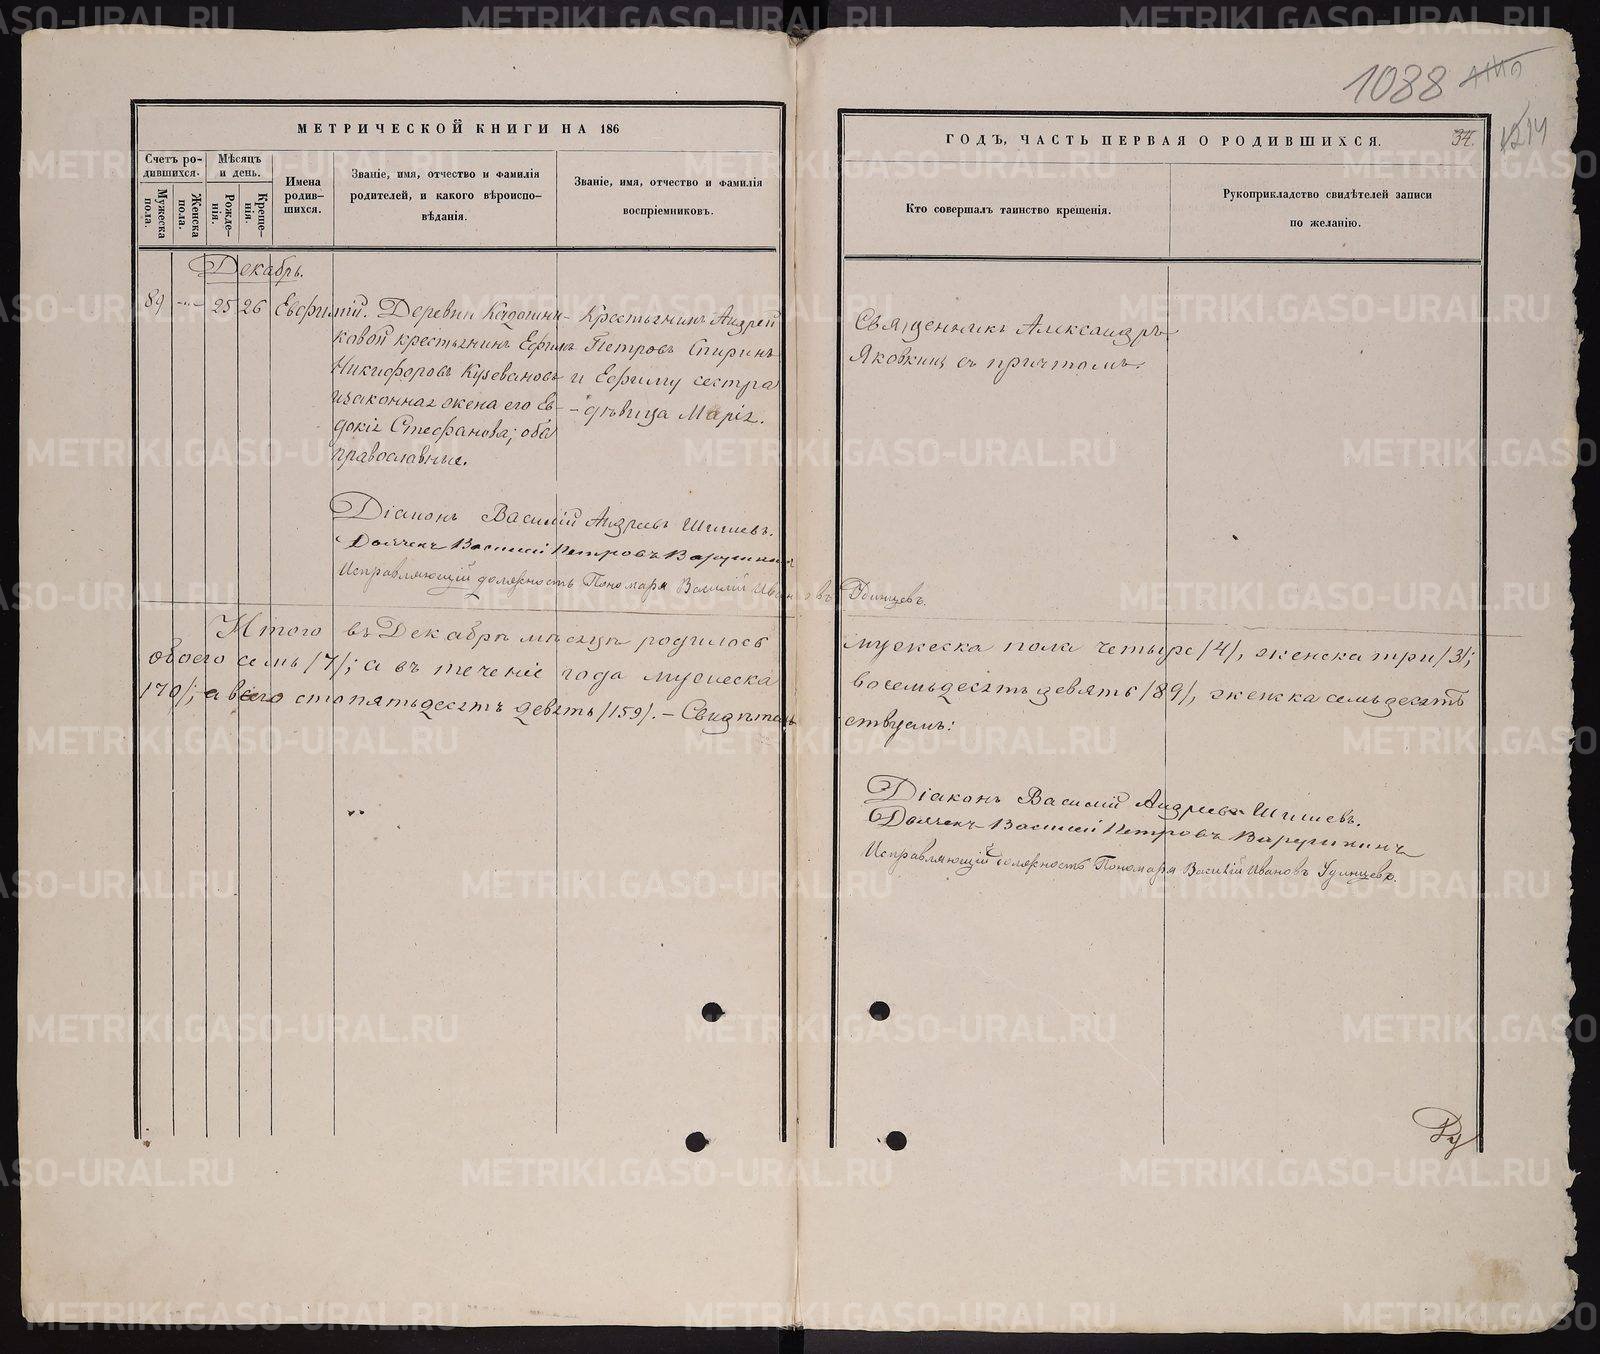 1088
МЕТРИЧЕСКОЙ КНИГИ НА 186
ГОДЪ, ЧАСТЬ ПЕРВАЯ О РОДИВШИХСЯ.
34.
Счетъ родившихся.
Мужеска пола.
Женска пола.
Мѣсяцъ и день.
Рожденія.
Крещенія.
Имена родившихся.
Званіе, имя, отчество и фамилія
родителей, и какого вѣроиспо-
вѣданія.
Званіе, имя, отчество и фамилія
воспріемниковъ.
Кто совершалъ таинство крещенія.
Рукоприкладство свидѣтелей записи
по желанію.
Декабрь.
89 25 26 Евфимій.
Деревни
ковой крестьянинъ Ефимъ
Никифоровъ Кузевановъ
и законная жена его Ев-
докія Стефанова; оба
православные.
Крестьянинъ Андрей
Петровъ Спиринъ
и Ефиму сестра
дѣвица Марія.
Священникъ Александръ
Яковкинъ съ причтомъ.
Діаконъ Василій Андреевъ Шишевъ.
Дьячекъ Василий Петровъ Варушкинъ
Исправляющій должность Пономаря Василій Ивановъ Удинцевъ.
Итого въ Декабрѣ мѣсяцѣ родилось мужеска пола четыре /4/, женска три /3/;
обоего семь /7/; а въ теченіе года мужеска восемьдесятъ девять /89/, женска семьдесятъ
/70/; а всего сто пятьдесятъ девять /159/. – Свидѣтельствуемъ:
Діаконъ Василій Андреевъ Шишевъ.
Дьячекъ Василий Петровъ Варушкинъ
Исправляющій должность Пономаря Василій Ивановъ Удинцевъ.
METRIKI.GASO-URAL.RU